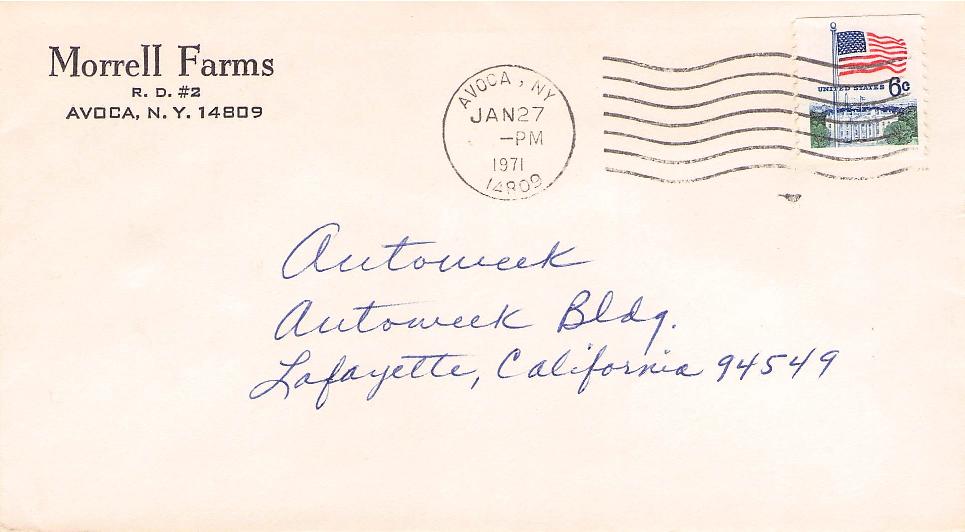 Morrell Farms
R. D. #2
AVOCA, N. Y. 14809
AVOCA, NY
JAN27
-PM
1971
14809
UNITED STATES 6c
Autoweek
Autoweek Bldg.
Lafayette, California 94549